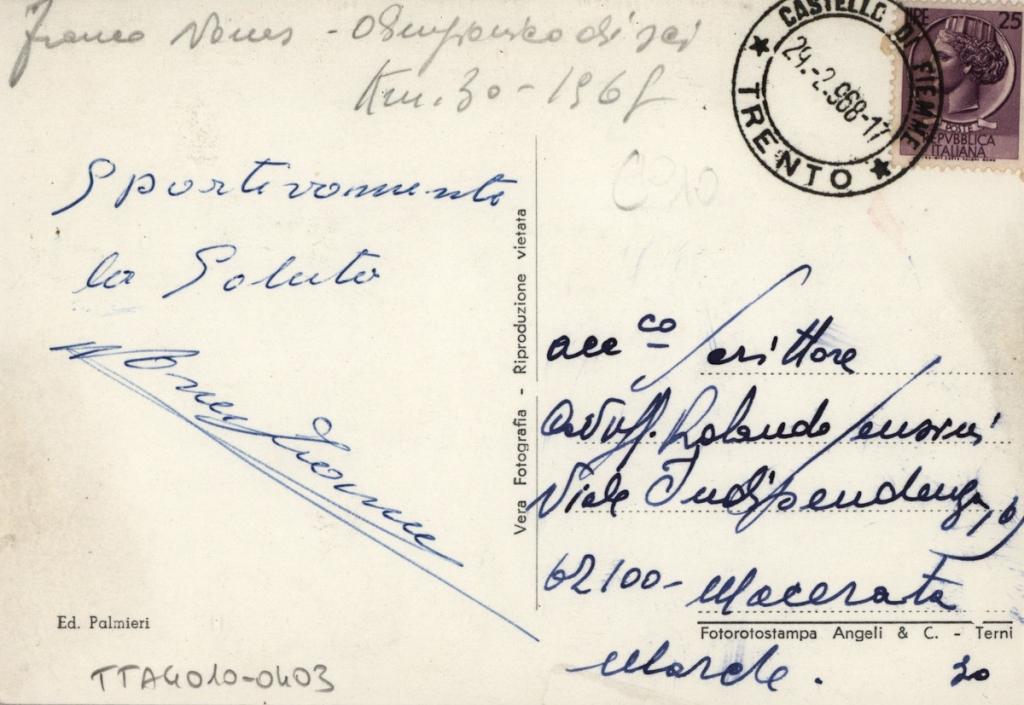 Franco Nones - Olimpionico di sci
Km. 30 - 1968
CASTELLO DI FIEMME
29.-2.968-17
★ TRENTO ★
LIRE 25
POSTE
REPVBBLICA
ITALIANA
Sportivamente
la Saluto
Nones Franco
Vera Fotografia - Riproduzione vietata
acc co Scrittore
Cav. Uff. Rolando Sensini
Viale Indipendenza,
62100 - Macerata
Marche.
Ed. Palmieri
Fotorotostampa Angeli & C. - Terni
TTA4010-0403